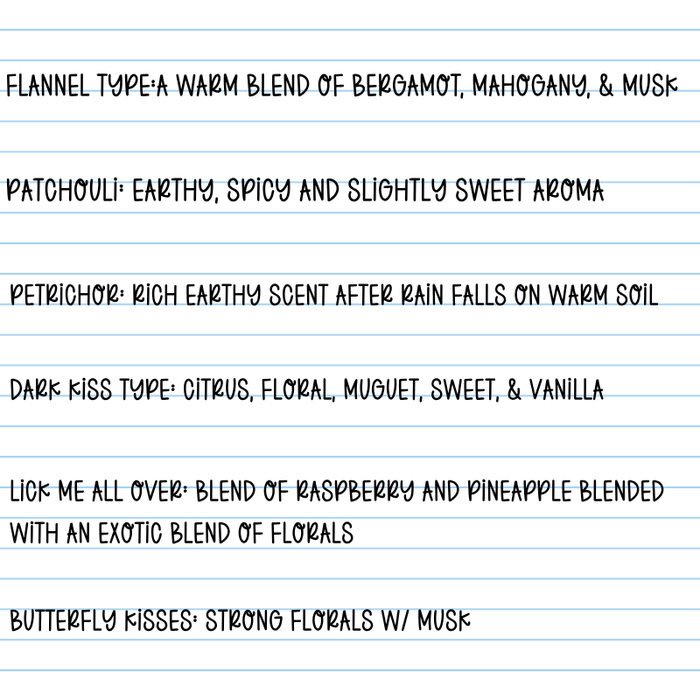 FLANNEL TYPE:A WARM BLEND OF BERGAMOT, MAHOGANY, & MUSK
PATCHOULI: EARTHY, SPICY AND SLIGHTLY SWEET AROMA
PETRICHOR: RICH EARTHY SCENT AFTER RAIN FALLS ON WARM SOIL
DARK KISS TYPE: CITRUS, FLORAL, MUGUET, SWEET, & VANILLA
LICK ME ALL OVER: BLEND OF RASPBERRY AND PINEAPPLE BLENDED
WITH AN EXOTIC BLEND OF FLORALS
BUTTERFLY KISSES: STRONG FLORALS W/ MUSK